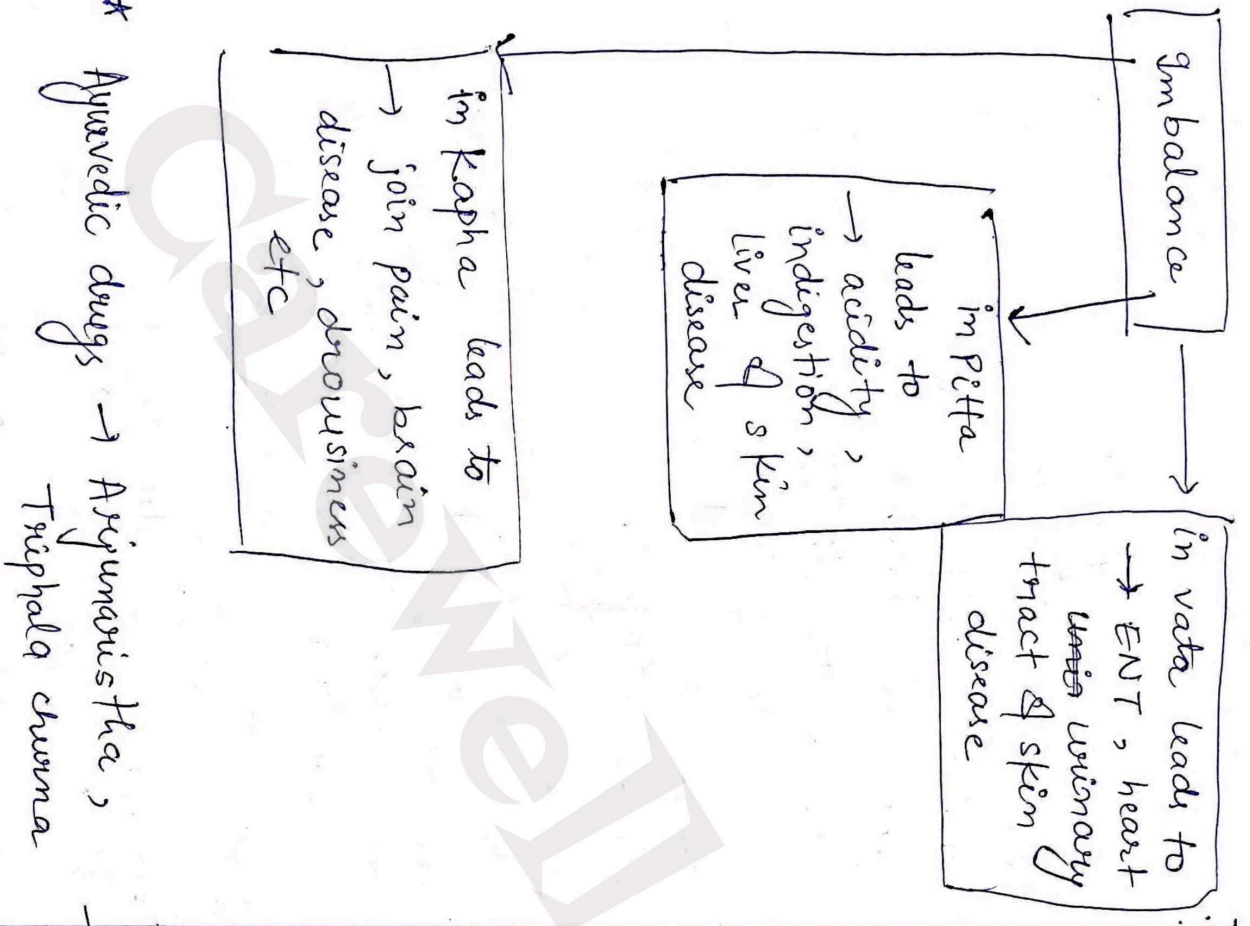 Imbalance
in vata leads to
→ ENT, heart
urinary
tract & skin
disease
in Pitta
leads to
→ acidity,
indigestion,
Liver & skin
disease
in Kapha leads to
→ join pain, brain
disease, drousiness
etc
* Ayurvedic drugs → Arjunaristha,
Triphala churna
Carewell